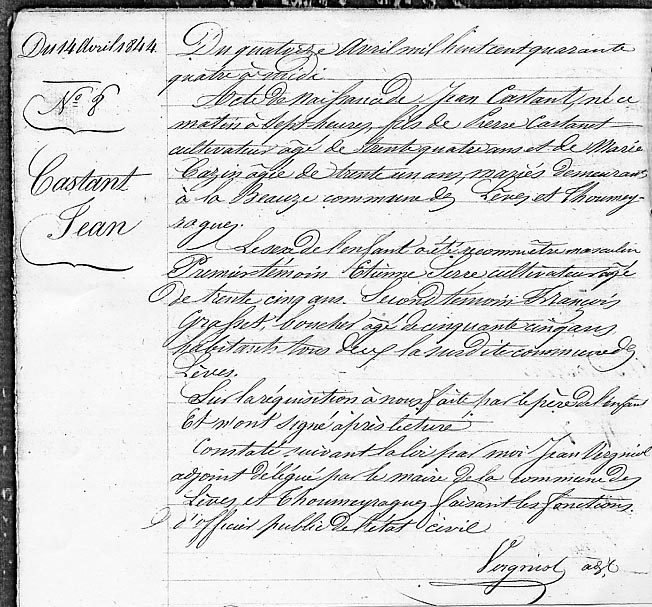 Du 14 Avril 1844
N° 8
Castant
Jean
Du quatorze Avril mil huit cent quarante
quatre à midi
Acte de naissance de Jean Castant, né ce
matin à sept heures, fils de Pierre Castant
cultivateur âgé de trente quatre ans et de Marie
Cazin âgée de trente un ans, mariés demeurant
à la Beauze commune des Lèves et Thoumey-
ragues.
Le sexe de l'enfant a été reconnu être masculin
Premier témoin Etienne Serre cultivateur âgé
de trente cinq ans. Second témoin François
Grasset, boucher âgé de cinquante cinq ans
habitants tous deux la susdite commune des
Lèves.
Sur la réquisition à nous faite par le père de l'enfant
Et n'ont signé après lecture
Constaté suivant la loi par moi Jean Vergniol
adjoint délégué par le maire de la commune des
Lèves et Thoumeyragues faisant les fonctions
d'officier public de l'état civil
Vergniol adjt